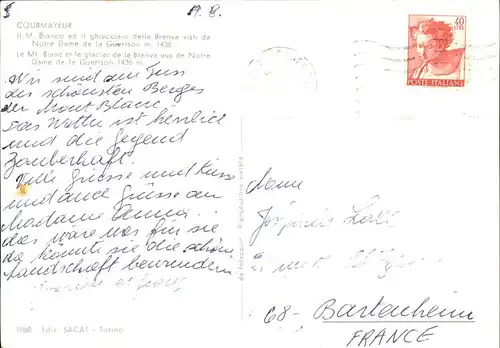 19. 8.
COURMAYEUR
Il M. Bianco ed il ghiacciaio della Brenva visti da
Notre Dame de la Guérison m. 1436
Le Mt. Blanc et le glacier de la Brenva vus de Notre
Dame de la Guérison 1436 m.
40
LIRE
POSTE ITALIANE
Wir sind am Fuss
des schönsten Berges
der Mont Blanc.
Das Wetter ist herrlich
und die Gegend
Zauberhaft.
Viele Grüsse und Küsse
und auch Grüsse an
Madame Anna..
das wäre was für sie
da könnte sie die schöne
Landschaft bewundern
da fotocolor Riproduzione vietata
Mome
68- Bartenheim
FRANCE
1060 Ediz. SACAT - Torino